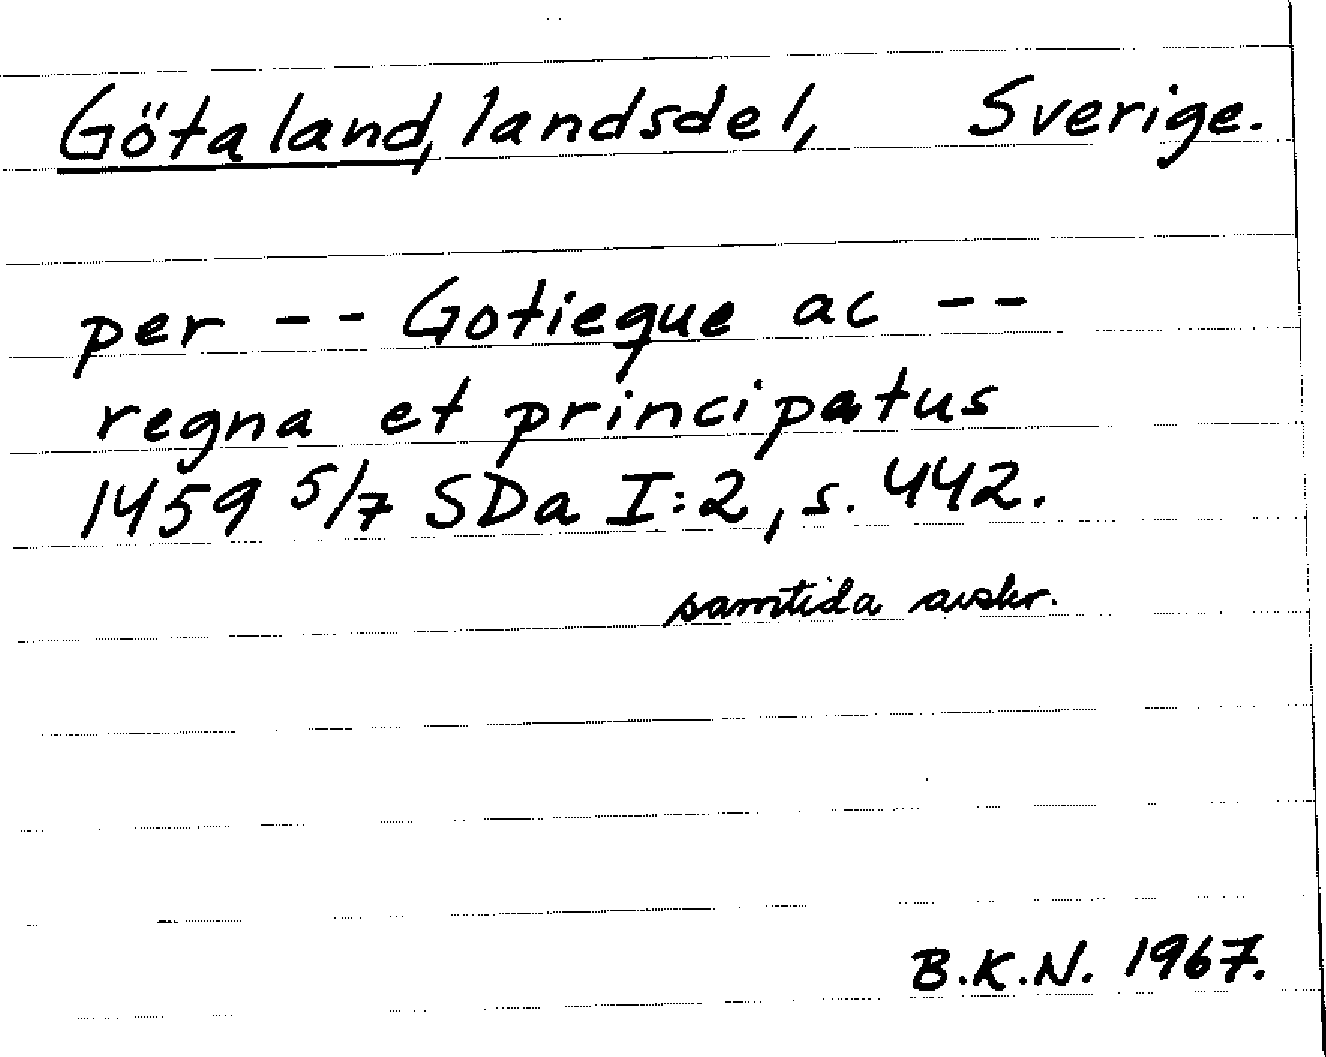 Götaland, landsdel, Sverige.
per -- Gotieque ac --
regna et principatus
1459 5/7 SDa I:2, s. 442.
samtida avskr.
B.K.N. 1967.